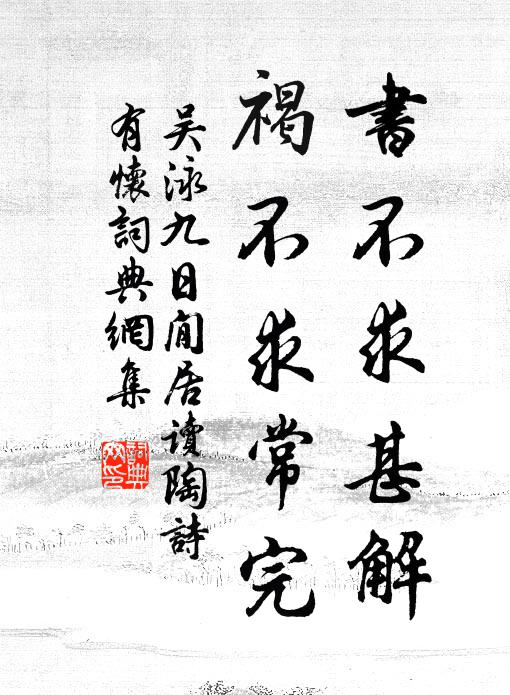 書不求甚解
褐不求常完
吴泳九日閒居讀陶詩
有懷詞典網集